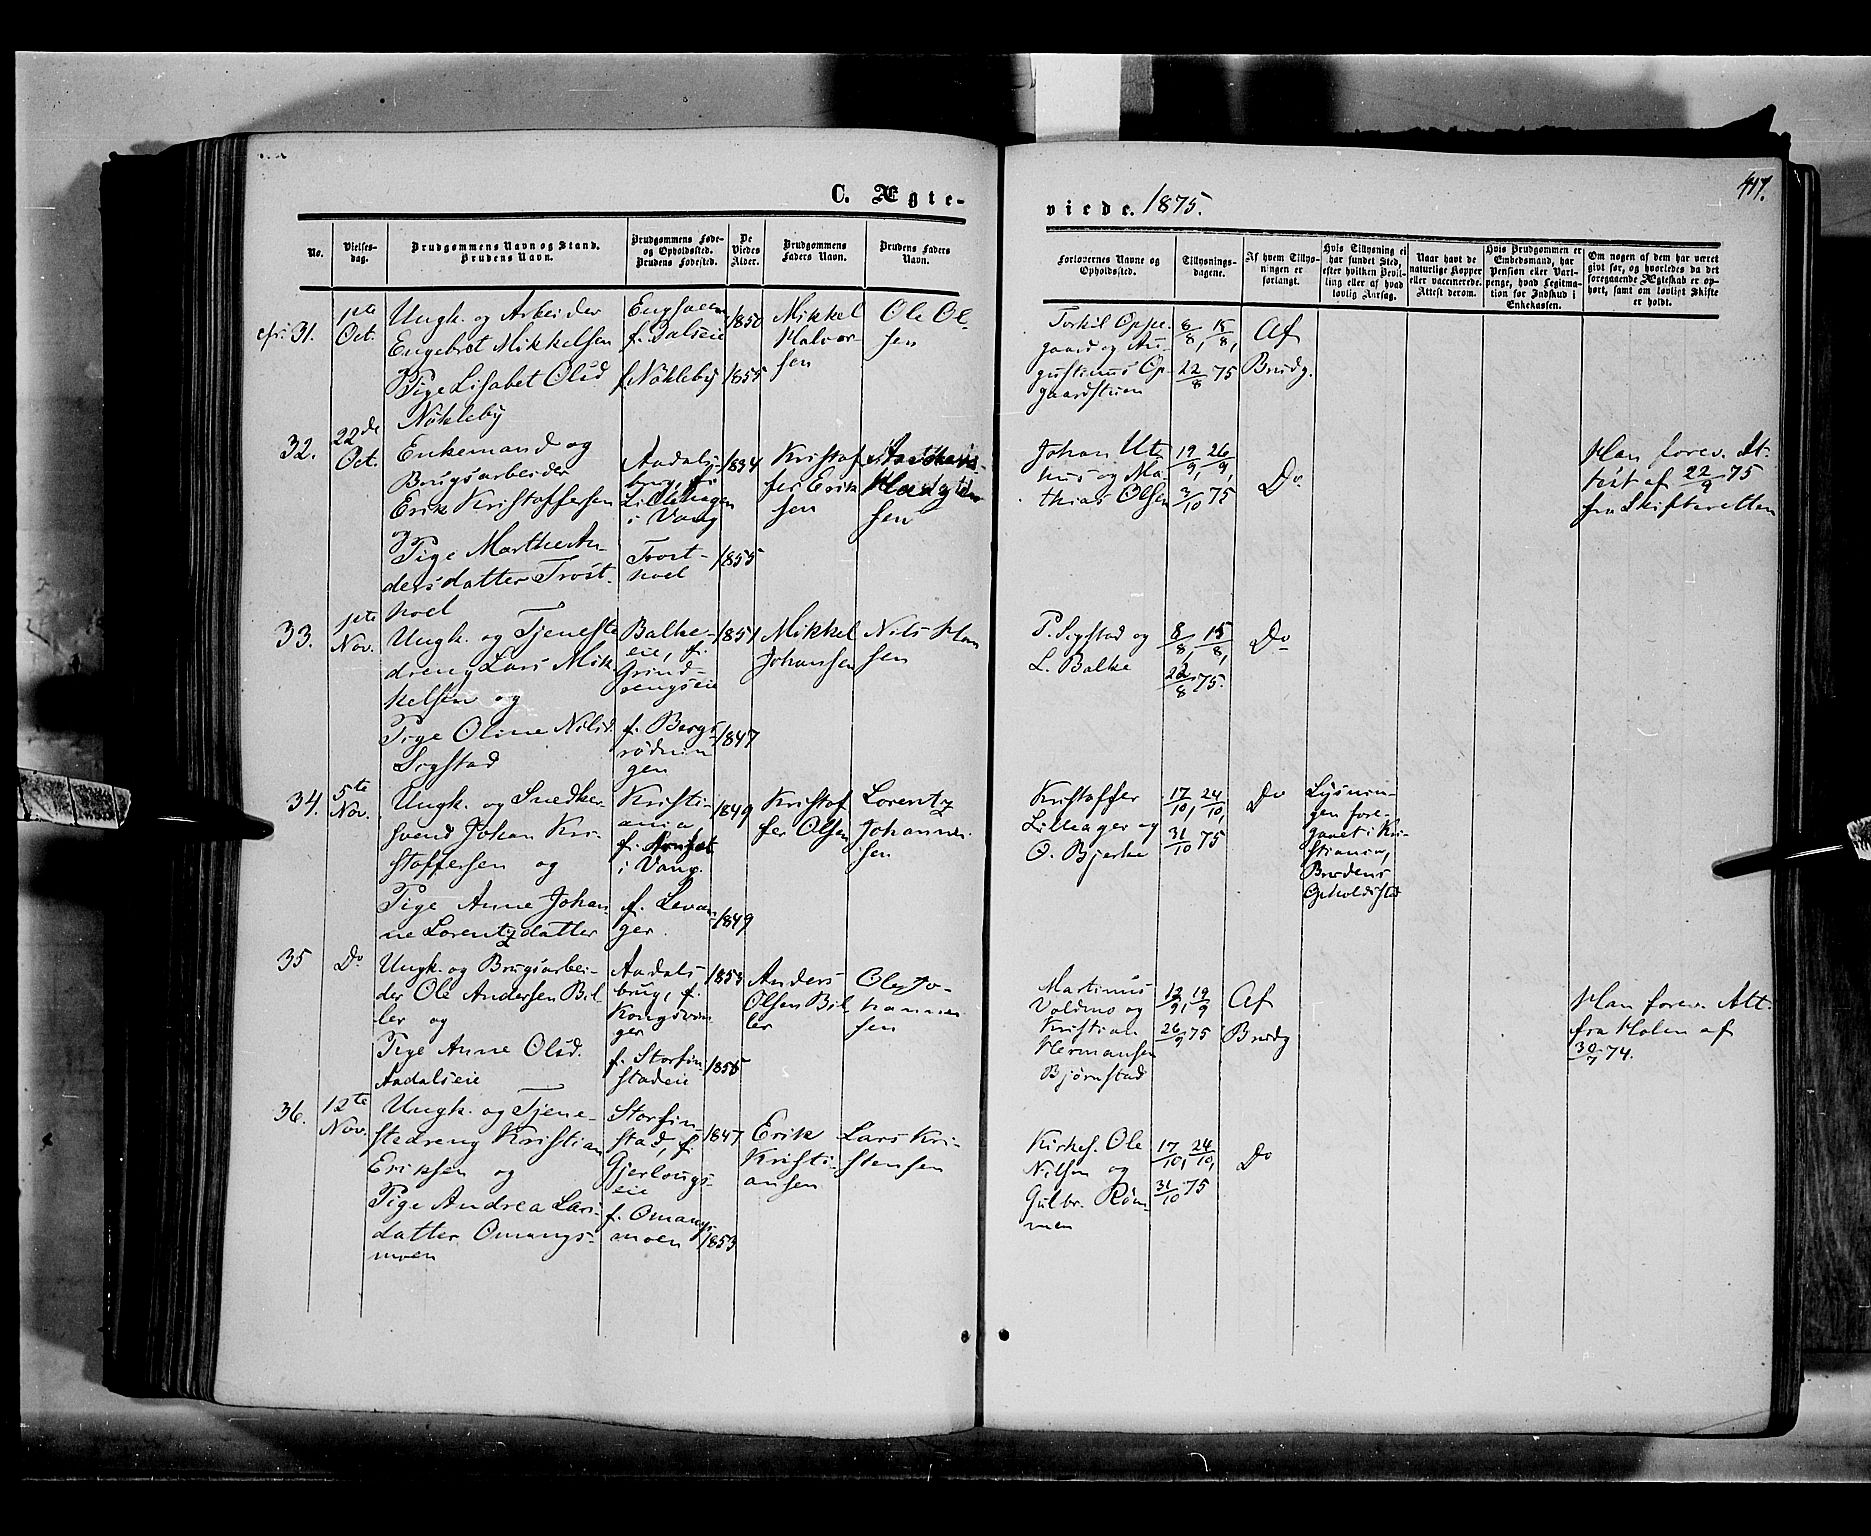 C. Ægte-
viede. 1875.
417.
No.
Vielses-
dag.
Brudgommens Navn og Stand.
Brudens Navn.
Brudgommens Føde-
og Opholdssted.
Brudens Fødested.
De
Viedes
Alder.
Brudgommens
Faders Navn.
Brudens Faders
Navn.
Forlovernes Navne og
Opholdssted.
Tillysnings-
dagene.
Af hvem Tillys-
ningen er
forlangt.
Hvis Tillysning ei
har fundet Sted,
efter hvilken Bevil-
ling eller af hvad
lovlig Aarsag.
Naar havt de
naturlige Kopper
eller vaccinerede.
Attest derom.
Hvis Brudgommen er
Embedsmand, har
Pension eller Vart-
penge, hvad Legitima-
tion for Indskud i
Enkekassen.
Om nogen af dem har været
givt før, og hvorledes da det
foregaaende Ægteskab er op-
hørt, samt om lovligt Skifte
er holdt.
31.
1ste
Oct.
Ungk. og Arbeider
Engebret Mikkelsen
Pige Lisabet Olsd
Nökleby
f. Dalseie
f. Nökleby
1850
1855
Mikkel
Halvor
sen
Ole Ol-
sen
Torkil Oppe-
gaard og Au-
gustinus Op-
gaardstuen
8/8, 15/8,
22/8 75
Af
Brudg.
32.
22de
Oct.
Enkemand og
Brugsarbeider
Erik Kristoffersen
og
Pige Marthe An-
dersdatter Trost-
hoel
Aadals-
brug, f.
Lillehagen
i Vang
Trost-
hoel
1834
1855
Kristof
fer Erik
sen
Johan Ut-
hus og Ma-
thias Olsen
19/9, 26/9,
3/10 75
Do
Han forev. At-
test af 22/9 75
fra Skifteretten
33.
1ste
Nov.
Ungk. og Tjeneste
dreng Lars Mik-
kelsen og
Pige Oline Nilsd.
Sogstad
Balke-
eie, f.
Grind-
vengseie
f. Bergs
rödnin
gen
1851
1847
Mikkel
Johansen
Nils Han
sen
P. Sogstad og
L. Balke
8/8, 15/8,
22/8 75.
Do
34.
5te
Nov.
Ungk. og Snedker-
svend Johan Kri-
stoffersen og
Pige Anne Johan-
ne Lorentzdatter
Kristi-
ania
i Vang.
f. Levan-
ger.
1849
1849
Kristof
fer Olsen
Lorentz
Johanne-
sen
Kristoffer
Lilleager og
O. Bjerke
17/10, 24/10,
31/10 75
Do
Lysnin-
gen fore-
gaaet i Kri-
stiania,
Brudens
Opholdsted
35
Do
Ungk. og Brugsarbei-
der Ole Andersen Bil
ler og
Pige Anne Olsd.
Aadalseie
Aadals-
brug, f.
Kongsvin-
ger
f. Storfin
stadeie
1853
1855
Anders
Olsen Bil
ler
Ole Jo-
hanne-
sen
Martinus
Voldmo og
Kristian
Hermansen
Bjørnstad
12/9, 19/9
26/9 75
Af
Brudg
Han forev. Att.
fra Holen af
30/7 74.
36.
12te
Nov.
Ungk. og Tjene-
stedreng Kristian
Eriksen og
Pige Andrea Lars
datter Omangs-
moen
Storfin-
stad, f.
Gjerlougs-
eie
f. Omangs
moen
1847
1853
Erik
Kristi-
ansen
Lars Kri-
stensen
Kirkes. Ole
Nilsen og
Gulbr. Röm
men
17/10, 24/10,
31/10 75
Do